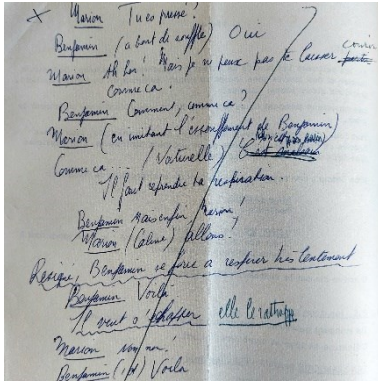 Marion Tu es pressé?
Benjamin (a bout de souffle) Oui
Marion Ah bon! Mais je ne peux pas te laisser courir
comme ca.
Benjamin Comment, comme ca?
Marion (en imitant l'essoufflement de Benjamin)
Comme ca... (Naturelle)
Il faut reprendre ta respiration.
Benjamin Mais enfin Marion!
Marion (calme) allons!
Résigné, Benjamin se force a respirer très lentement
Benjamin Voila
Il veut s'échapper elle le rattrape
Marion non non!
Benjamin Voila